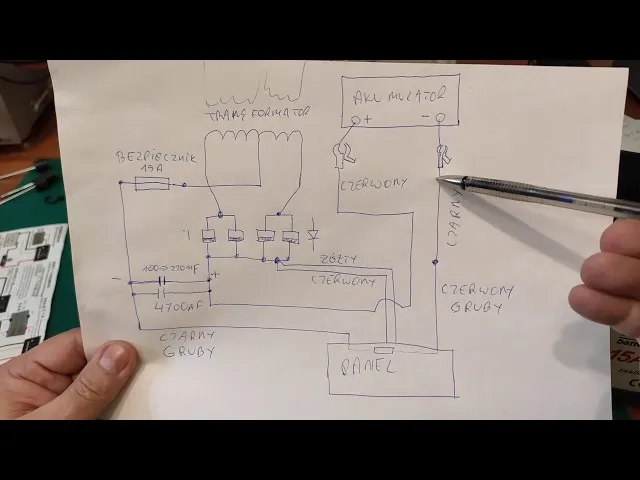 TRANSFORMATOR
BEZPIECZNIK
15A
AKUMULATOR
+ -
CZERWONY
CZARNY
ŻÓŁTY
CZERWONY
- 100->220nF +
4700nF
CZERWONY
GRUBY
CZARNY
GRUBY
PANEL
15A